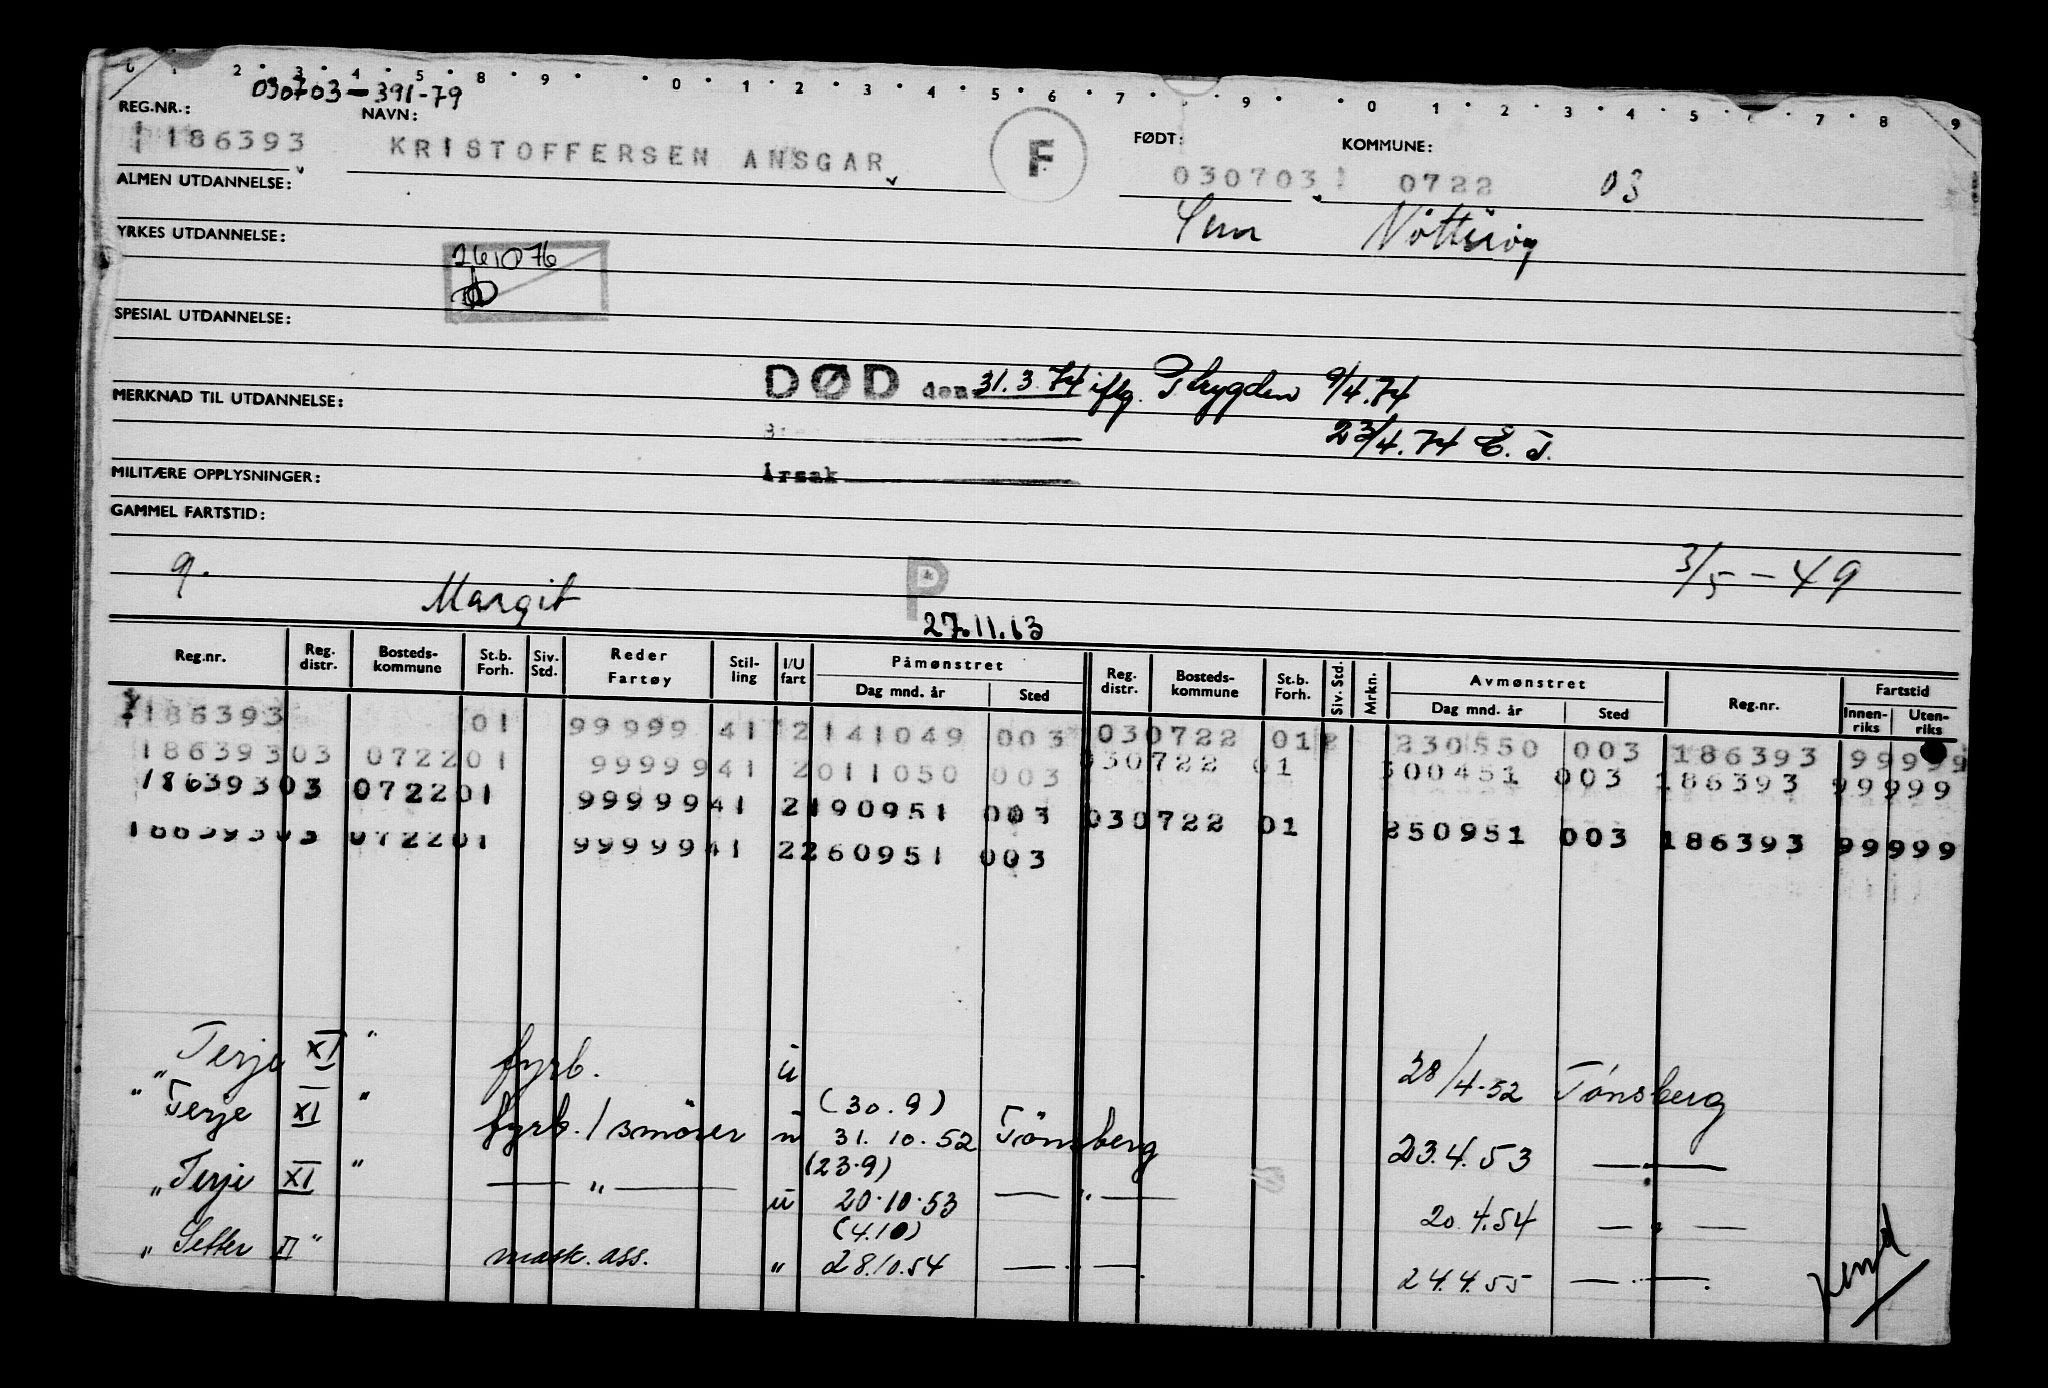 1 2 3 4 5 8 9 0 1 2 3 4 5 6 7 9 0 1 2 3 4 5 7 8 9
030703-391-79
REG.NR.: NAVN: FØDT: KOMMUNE:
186393 KRISTOFFERSEN ANSGAR F 030703 0722 03
ALMEN UTDANNELSE:
Sem Nøtterøy
YRKES UTDANNELSE:
261076
SPESIAL UTDANNELSE:
DØD den 31.3.74 iflg. P.trygden 9/4.74
MERKNAD TIL UTDANNELSE:
23/4.74 E.T.
MILITÆRE OPPLYSNINGER:
Årsak
GAMMEL FARTSTID:
g. Margit P 3/5-49
27.11.63
Reg.nr. Reg. distr. Bosteds-kommune St.b. Forh. Siv. Std. Reder Fartøy Stil-ling I/U fart Påmønstret Dag mnd. år Sted Reg. distr. Bosteds-kommune St.b. Forh. Siv. Std. Mrkn. Avmønstret Dag mnd. år Sted Reg.nr. Fartstid Innen-riks Uten-riks
186393 01 99999 41 2 141049 003 030722 01 230550 003 186393 99999
186393 03 0722 01 99999 41 2 011050 003 030722 01 300451 003 186393 99999
186393 03 0722 01 99999 41 2 190951 003 030722 01 250951 003 186393 99999
186393 03 0722 01 99999 41 2 260951 003
„Terje XI" fyrb. u 28/4-52 Tønsberg
"Terje XI" fyrb./smører u (30.9) 31.10.52 Tönsberg 23.4.53 — " —
„Terje XI" — " — u (23.9) 20.10.53 — " — 20.4.54 — " —
„Setter II" mask. ass. " (4.10) 28.10.54 — " — 24.4.55 — " —